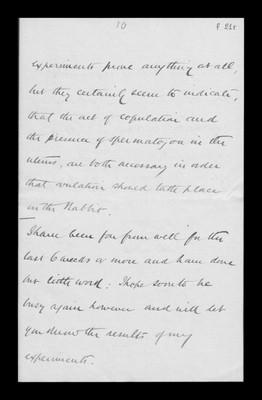 10
F 21r
experiments prove anything at all,
but they certainly seem to indicate,
that the act of copulation and
the presence of spermatozoa in the
uterus, are both necessary in order
that ovulation should take place
in the Rabbit.
I have been far from well for the
last 6 weeks or more and have done
but little work: I hope soon to be
busy again however and will let
you know the results of my
experiments.